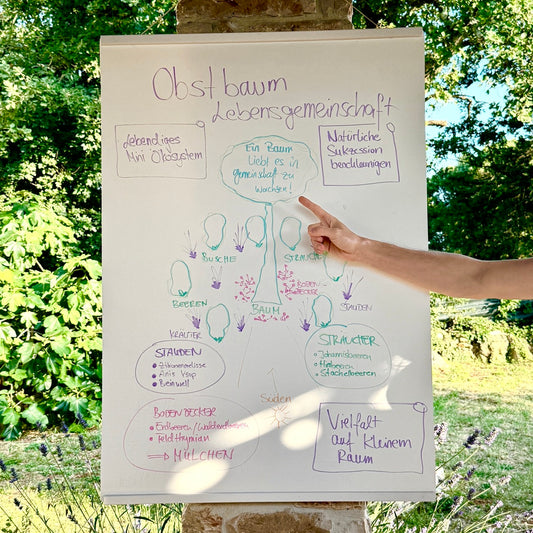 Obstbaum
Lebensgemeinschaft
Lebendiges
Mini Ökosystem
Natürliche
Sukzession
beschleunigen
Ein Baum
liebt es in
gemeinschaft zu
wachsen!
BÜSCHE
STRAUCH
BODEN
DECKER
BEEREN
STAUDEN
BAUM
KRÄUTER
STAUDEN
• Zitronenmelisse
• Anis Ysop
• Beinwell
STRÄUCHER
• Johannisbeeren
• Himbeeren
• Stachelbeeren
Süden
BODENDECKER
• Erdbeeren/Walderdbeeren
• Feldthymian
⇒ MULCHEN
Vielfalt
auf kleinem
Raum